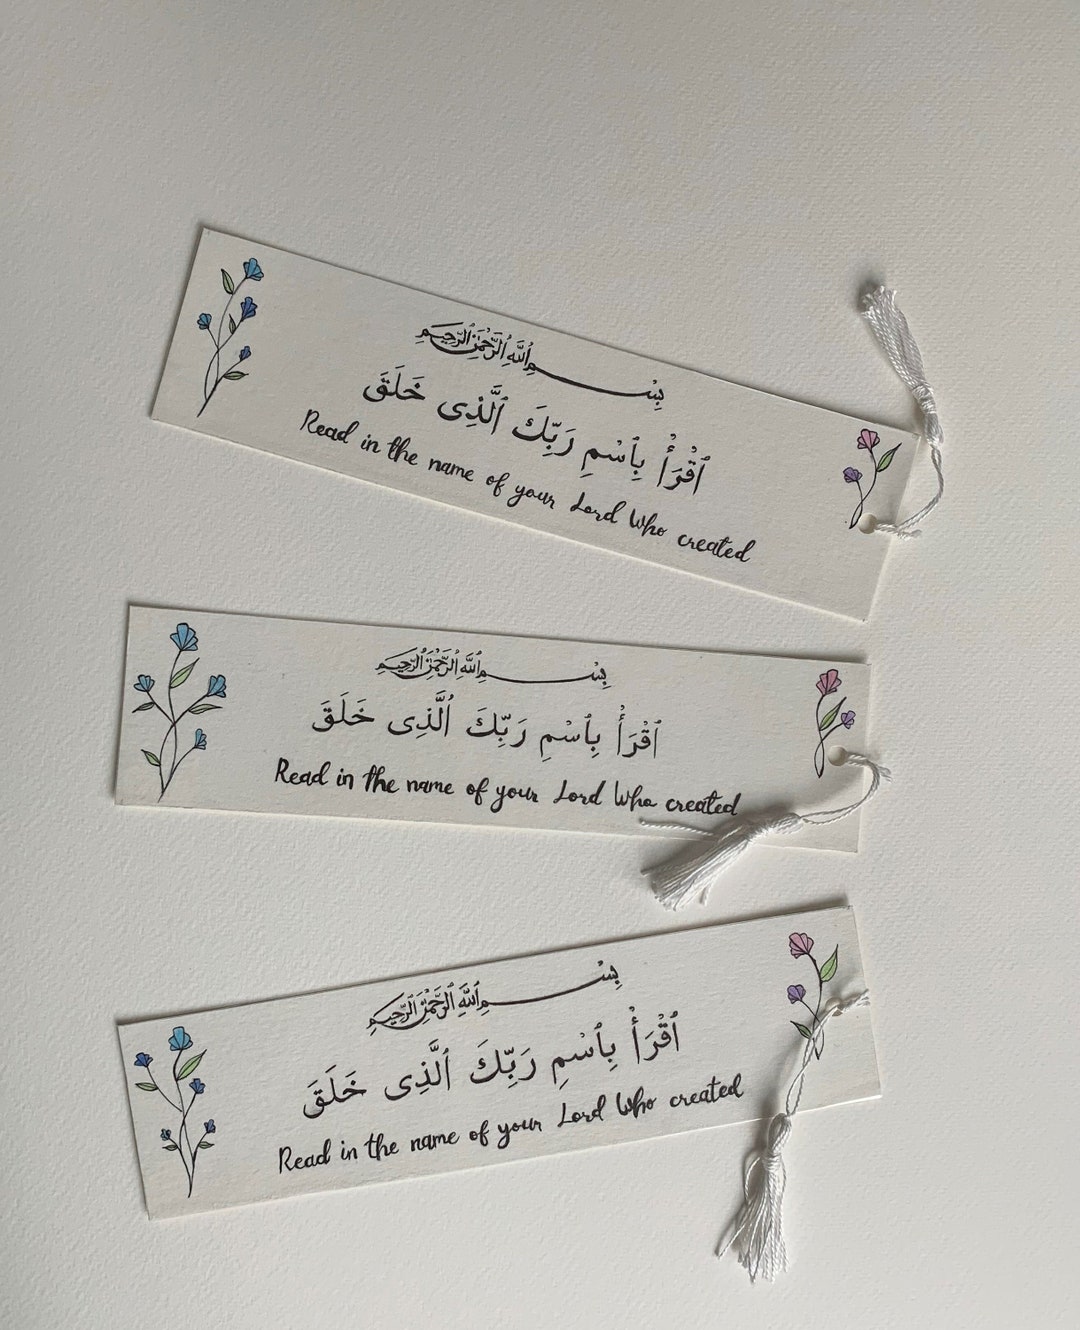 بِسْمِ ٱللَّهِ ٱلرَّحْمَٰنِ ٱلرَّحِيمِ
ٱقْرَأْ بِٱسْمِ رَبِّكَ ٱلَّذِى خَلَقَ
Read in the name of your Lord Who created
بِسْمِ ٱللَّهِ ٱلرَّحْمَٰنِ ٱلرَّحِيمِ
ٱقْرَأْ بِٱسْمِ رَبِّكَ ٱلَّذِى خَلَقَ
Read in the name of your Lord Who created
بِسْمِ ٱللَّهِ ٱلرَّحْمَٰنِ ٱلرَّحِيمِ
ٱقْرَأْ بِٱسْمِ رَبِّكَ ٱلَّذِى خَلَقَ
Read in the name of your Lord Who created